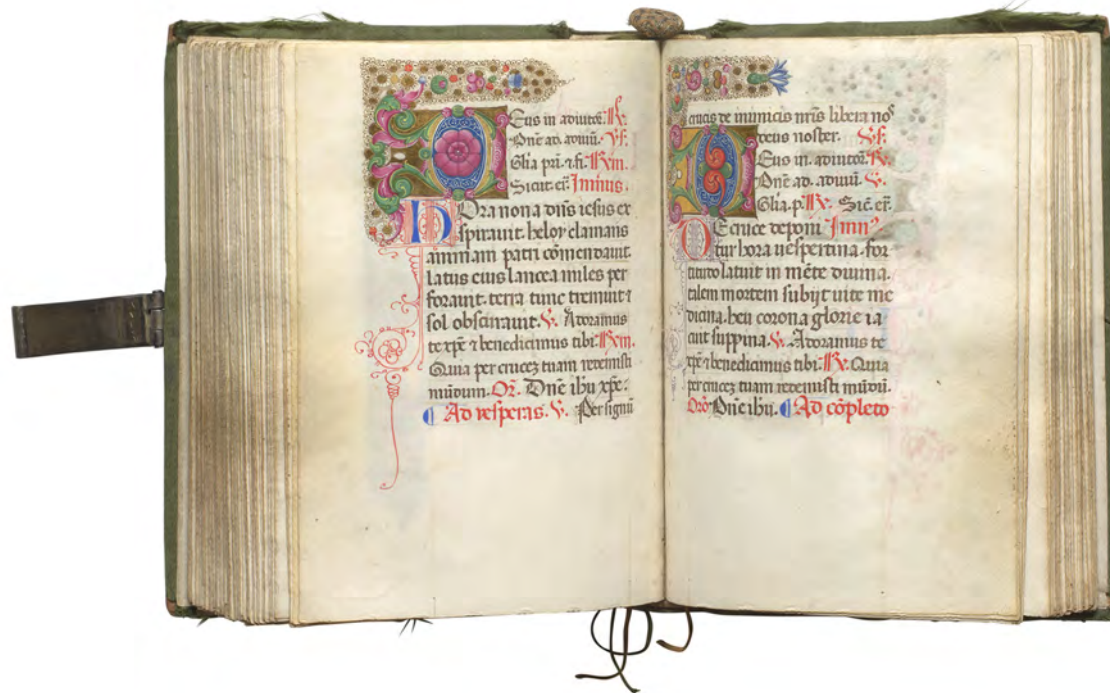 Deus in adiutoȝ. ℟.
Dñe ad adiuuā. ℣s.
Glia pri. ⁊ fi. ℟m.
Sicut er̄. Jmnus.
Hora nona dñs iesus ex
spirauit. heloy clamans
animam patri cōmendauit.
latus eius lancea miles per
forauit. terra tunc tremuit ⁊
sol obscurauit. ℣. Adoramus
te xp̄e ⁊ benedicimus tibi. ℟m.
Quia per crucez tuam redemisti
mūdum. Or̄. Dñe ihu xp̄e.
Ad vesperas. ℣. Per signū
crucis de inimicis nr̄is libera nos
deus noster. ℣s.
Deus in. adiutoȝ. ℟.
Dñe ad. adiuuā. ℣.
Glia. p. ℟. Sic̄. er̄.
De cruce deponi Jmn⁹
tur hora uespertina. for
titudo latuit in mēte diuina.
talem mortem subijt uite me
dicina. heu corona glorie ia
cuit suppina. ℣. Adoramus te
xp̄e ⁊ benedicimus tibi. ℟. Quia
per crucez tuam redemisti mūdū.
Orō. Dñe ihu. Ad cōpleto